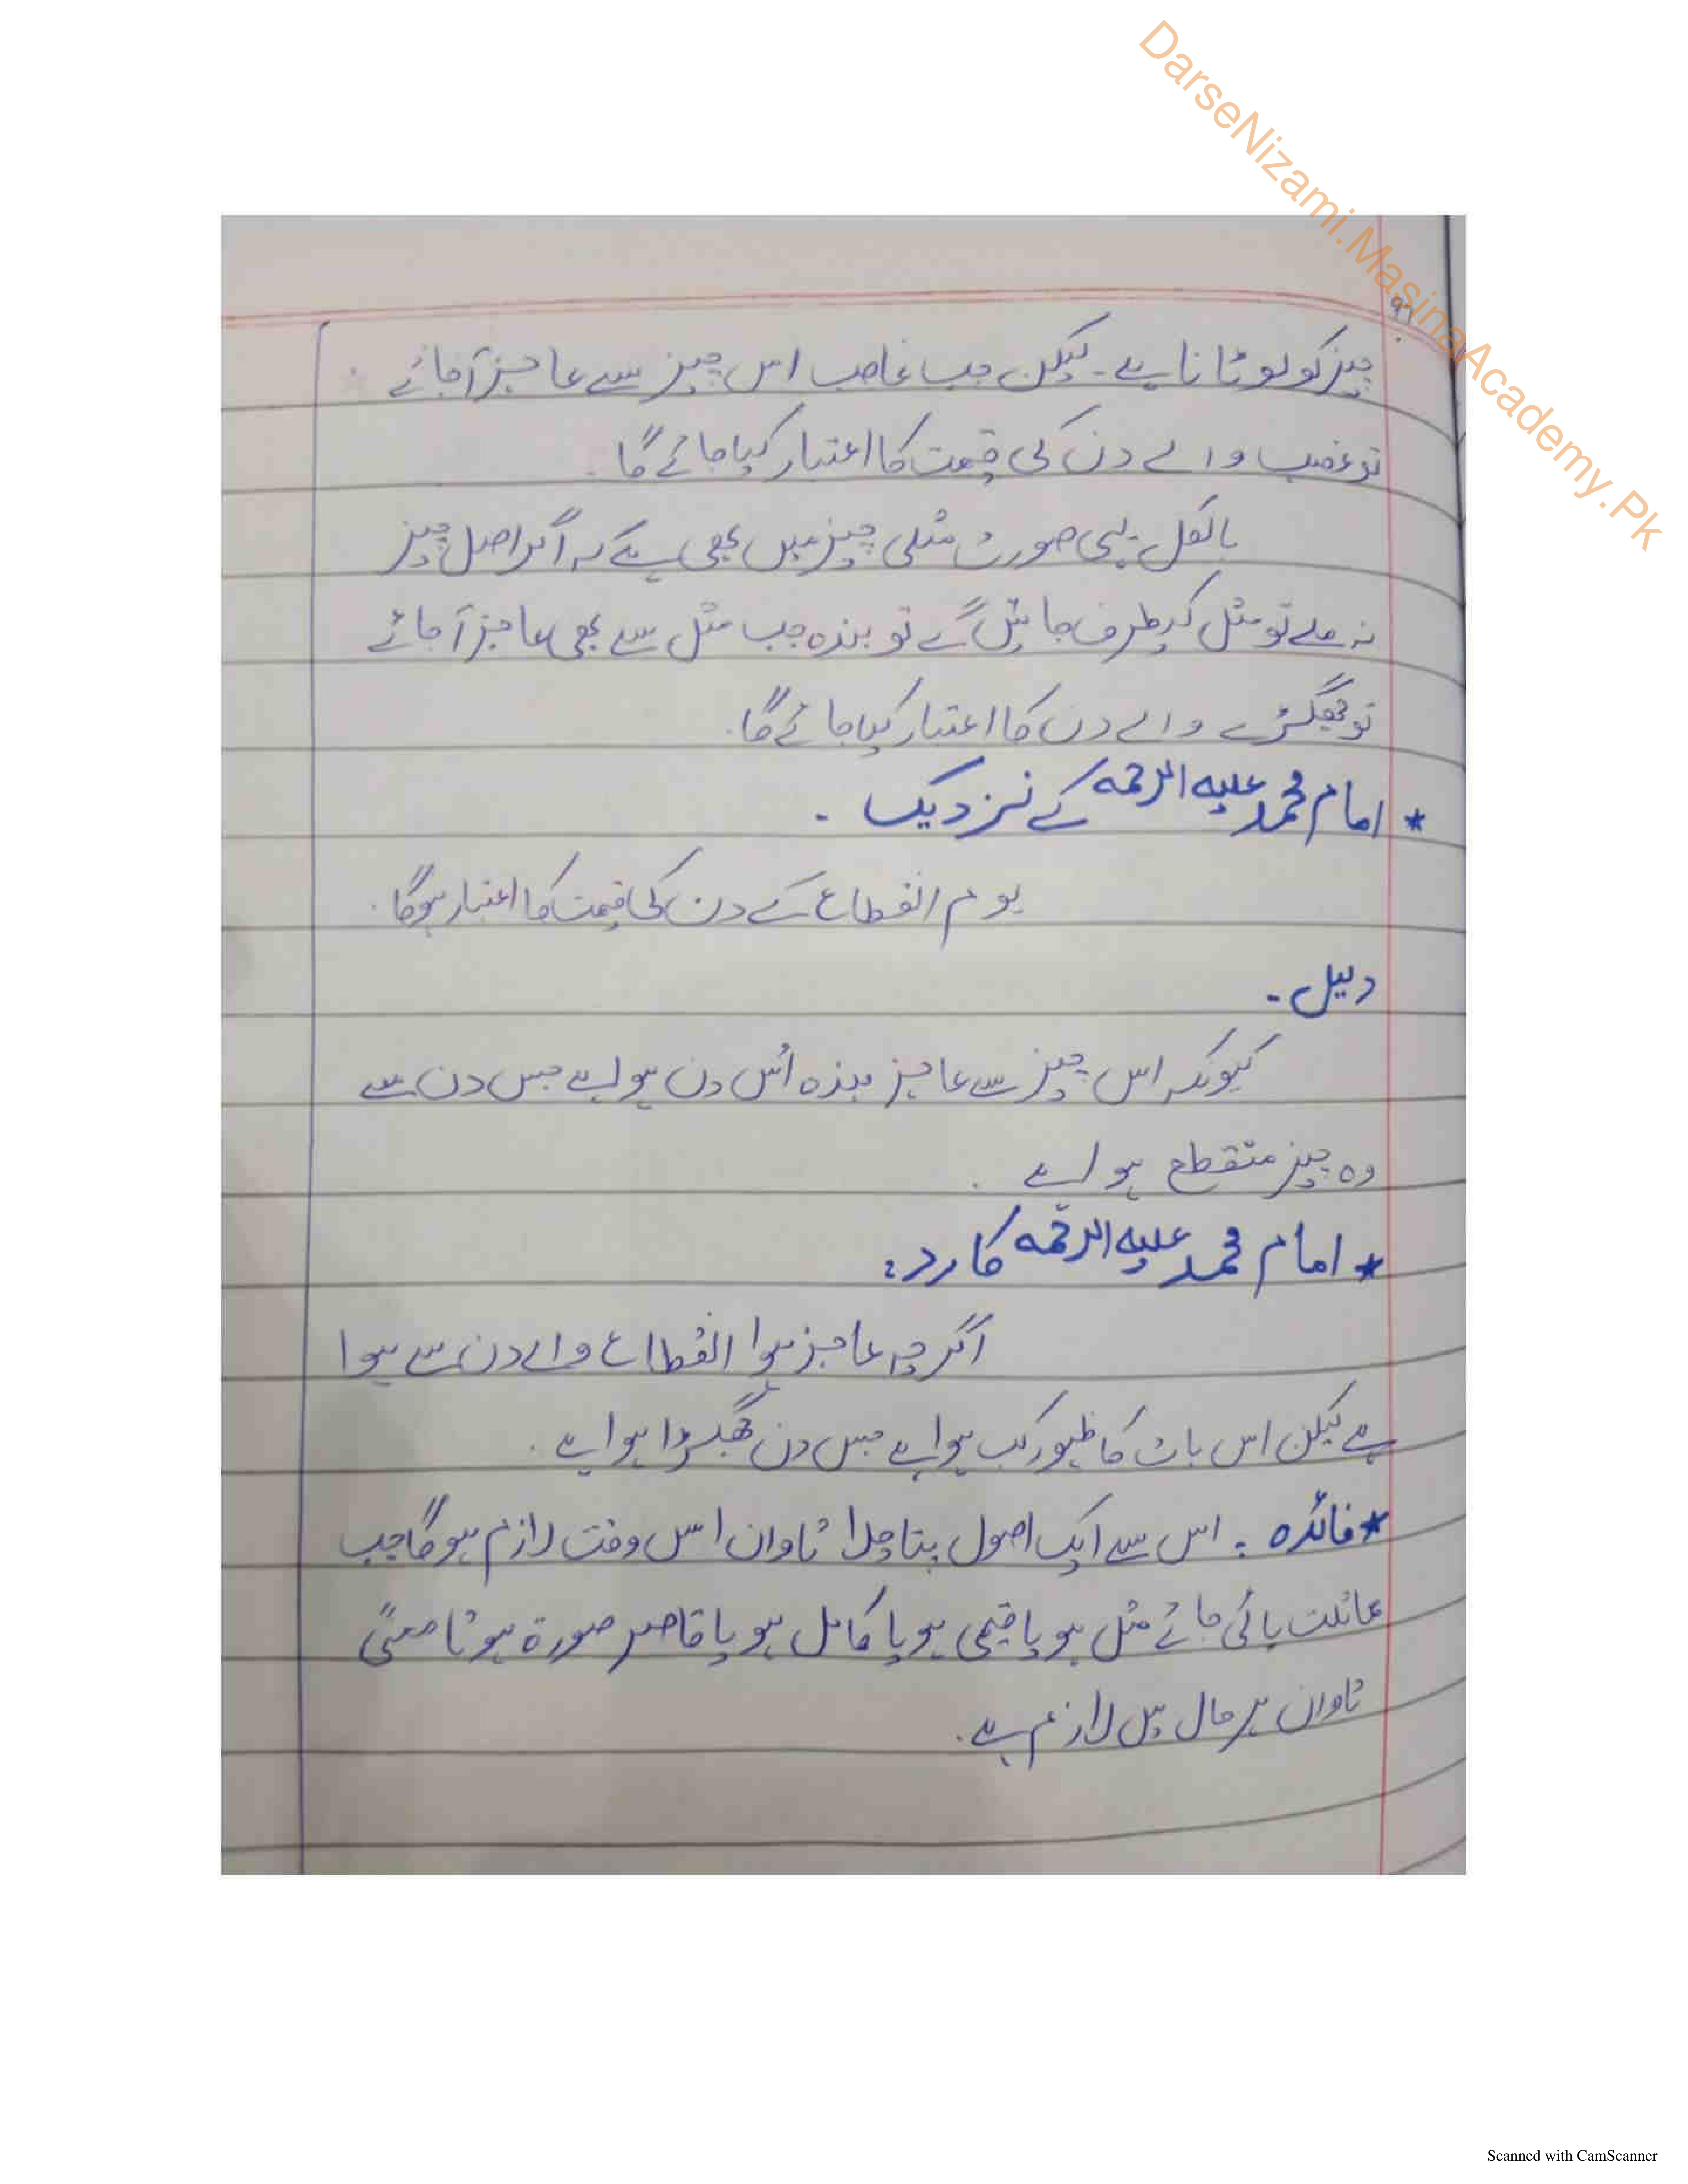 DarseNizami.MasinaAcademy.Pk
چیز کو لوٹانا ہے۔ لیکن جب غاصب اس چیز سے عاجز آجائے
تو غصب والے دن کی قیمت کا اعتبار کیا جائے گا۔
بالکل یہی صورت مثلی چیز میں بھی ہے کہ اگر اصل چیز
نہ ملے تو مثل کیطرف جائیں گے تو بندہ جب مثل سے بھی عاجز آجائے
تو جھگڑے والے دن کا اعتبار کیا جائے گا۔
* امام محمد علیہ الرحمہ کے نزدیک ۔
یوم انقطاع کے دن کی قیمت کا اعتبار ہوگا۔
دلیل ۔
کیونکہ اس چیز سے عاجز بندہ اُس دن ہوا ہے جس دن سے
وہ چیز منقطع ہوا ہے ۔
* امام محمد علیہ الرحمہ کا رد:
اگرچہ عاجز ہوا انقطاع والے دن سے ہوا
ہے لیکن اس بات کا ظہور کب ہوا ہے جس دن جھگڑا ہوا ہے ۔
* فائدہ : اس سے ایک اصول پتا چلا تاوان اس وقت لازم ہوگا جب
مماثلت پائی جائے مثل ہو یا قیمی ہو یا کامل ہو یا قاصر صورۃ ہو تا معنیً
تاوان ہر حال میں لازم ہے۔
Scanned with CamScanner